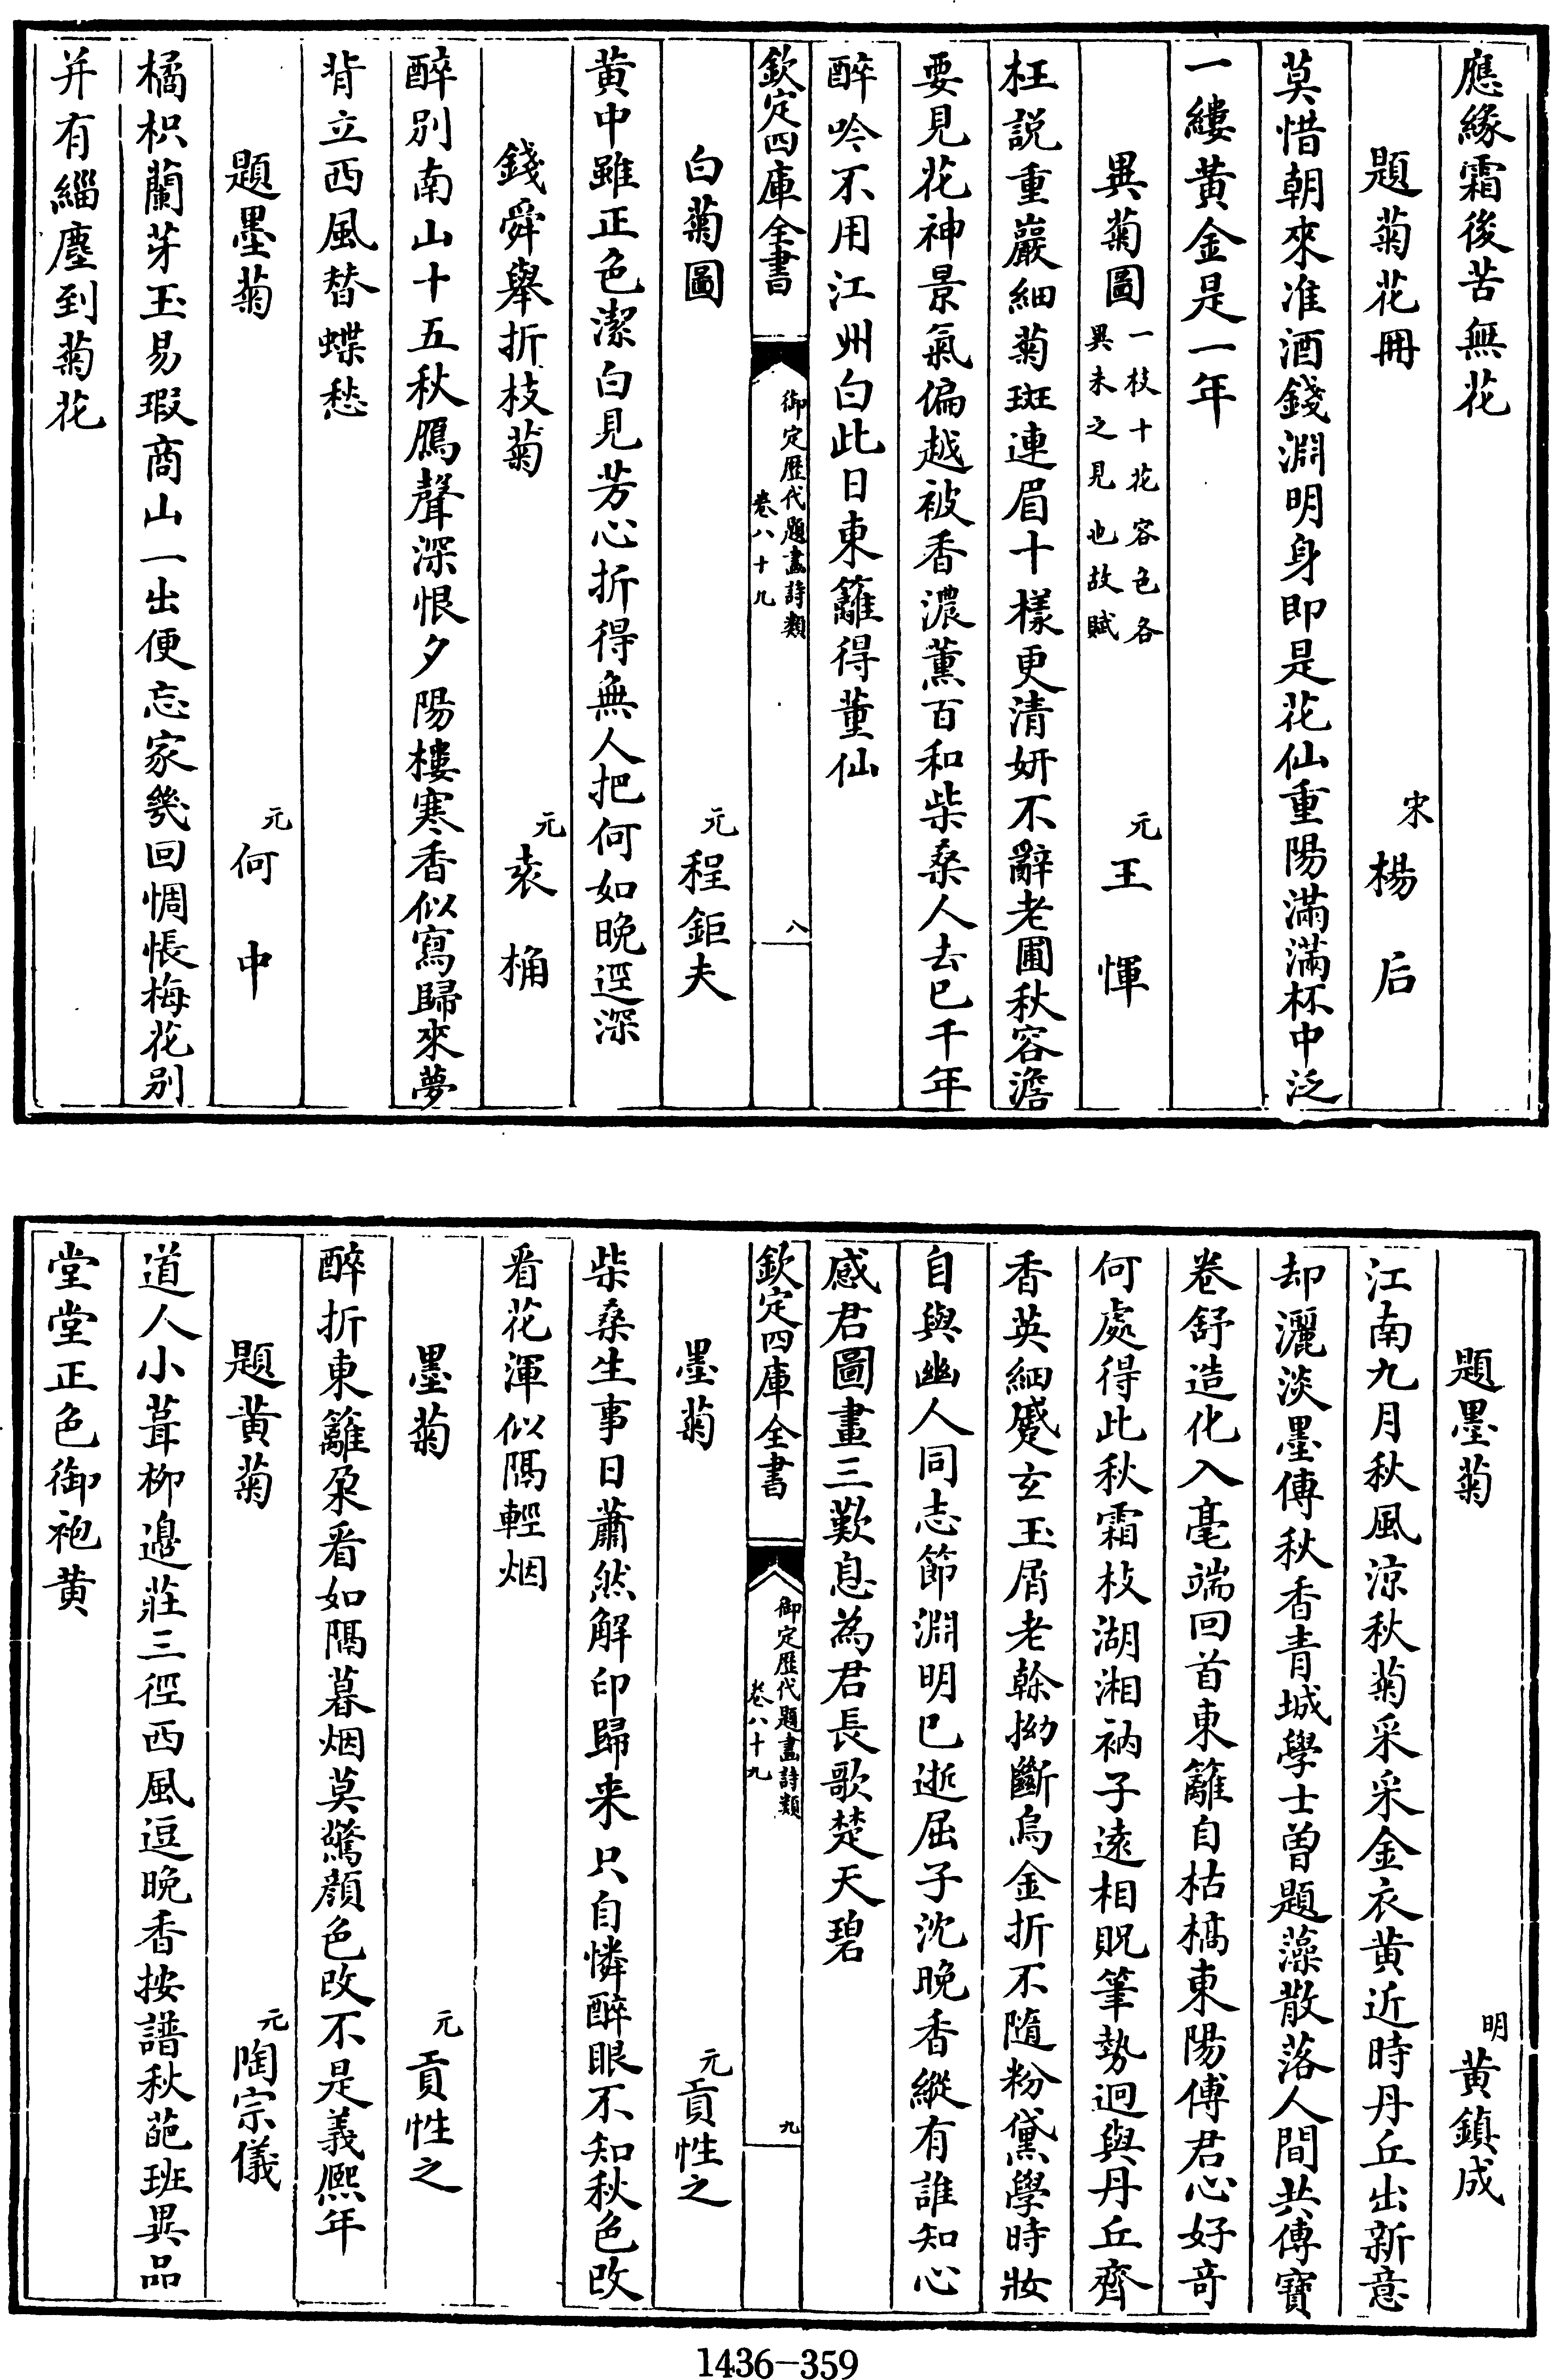 應緣霜後苦無花
題菊花冊
宋楊后
莫惜朝來准酒錢淵明身即是花仙重陽滿滿杯中泛
一縷黃金是一年
異菊圖一枝十花容色各
異未之見也故賦
元王惲
枉説重巖細菊斑連眉十樣更清妍不辭老圃秋容澹
要見花神景氣偏越被香濃薫百和柴桑人去已千年
醉吟不用江州白此日東籬得董仙
欽定四庫全書
御定歴代題畫詩類
卷八十九
八
白菊圖
元程鉅夫
黄中雖正色潔白見芳心折得無人把何如晚逕深
錢舜舉折枝菊
元袁桷
醉别南山十五秋鴈聲深恨夕陽樓寒香似寫歸來夢
背立西風替蝶愁
題墨菊
元何中
橘枳蘭芽玉易瑕商山一出便忘家幾回惆悵梅花别
并有緇塵到菊花
題墨菊
明黄鎮成
江南九月秋風涼秋菊采采金衣黄近時丹丘出新意
却灑淡墨傳秋香青城學士曾題藻散落人間共傳寶
卷舒造化入毫端回首東籬自枯槁東陽傅君心好奇
何處得此秋霜枝湖湘衲子遠相貺筆勢迥與丹丘齊
香英細蹙玄玉屑老榦拗斷烏金折不隨粉黛學時妝
自與幽人同志節淵明已逝屈子沈晚香縱有誰知心
感君圖畫三歎息為君長歌楚天碧
欽定四庫全書
御定歴代題畫詩類
卷八十九
九
墨菊
元貢性之
柴桑生事日蕭然解印歸来只自憐醉眼不知秋色改
看花渾似隔輕烟
墨菊
元貢性之
醉折東籬朶看如隔暮烟莫驚顔色改不是義熈年
題黄菊
元陶宗儀
道人小葺柳邉莊三徑西風逗晚香按譜秋葩班異品
堂堂正色御袍黄
1436-359